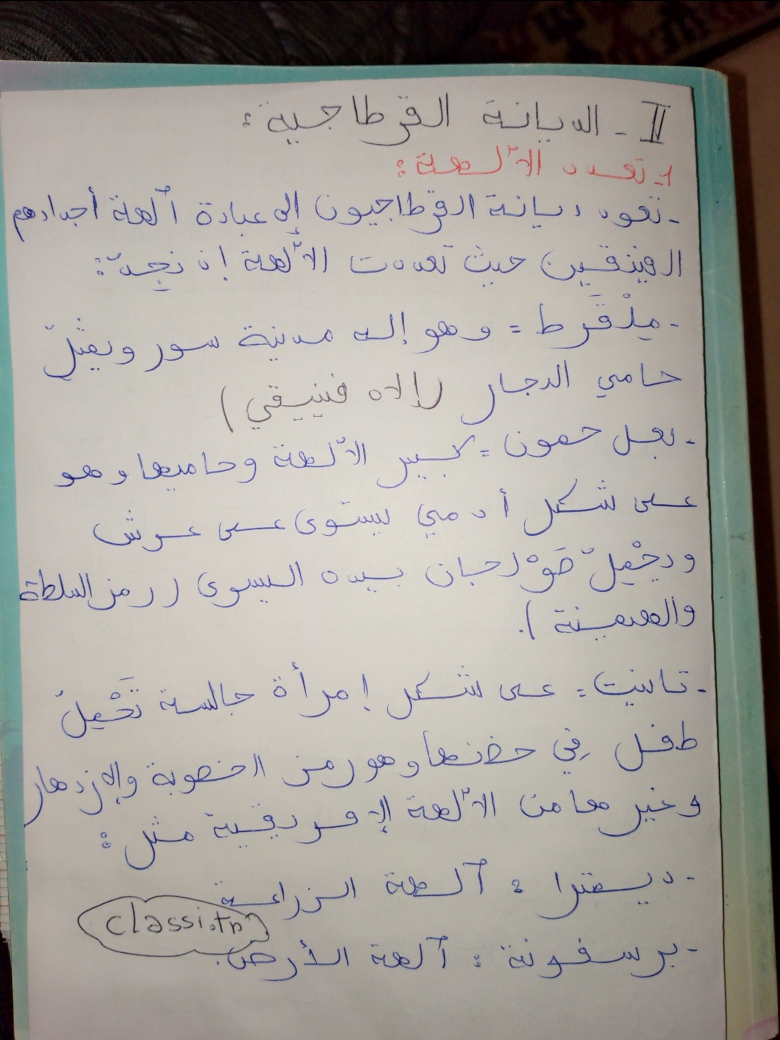 II - الديانة القرطاجية:
1- تعدد الآلهة:
- تعود ديانة القرطاجيون إلى عبادة آلهة أجدادهم
الفينقين حيث تعددت الآلهة إذ نَجِدُ:
- مِلْقَرط = وهو إله مدينة سور ويمثّل
حامي التجار (إلاه فينيقي)
- بعل حمون = كبير الآلهة وحاميها وهو
على شكل أدمي يستوى على عرش
ويحْمِلُ صَوْلجان بيده اليسوى (رمز السلطة
والهيمنة).
- تانيت = على شكل إمرأة جالسة تَحْمِلُ
طفل في حضنها وهو رمز الخصوبة والإزدهار
وغيرها من الآلهة الإفريقية مثل:
- ديمترا : آلهة الزراعة
classi.tn
- برسفونة : آلهة الأرض.